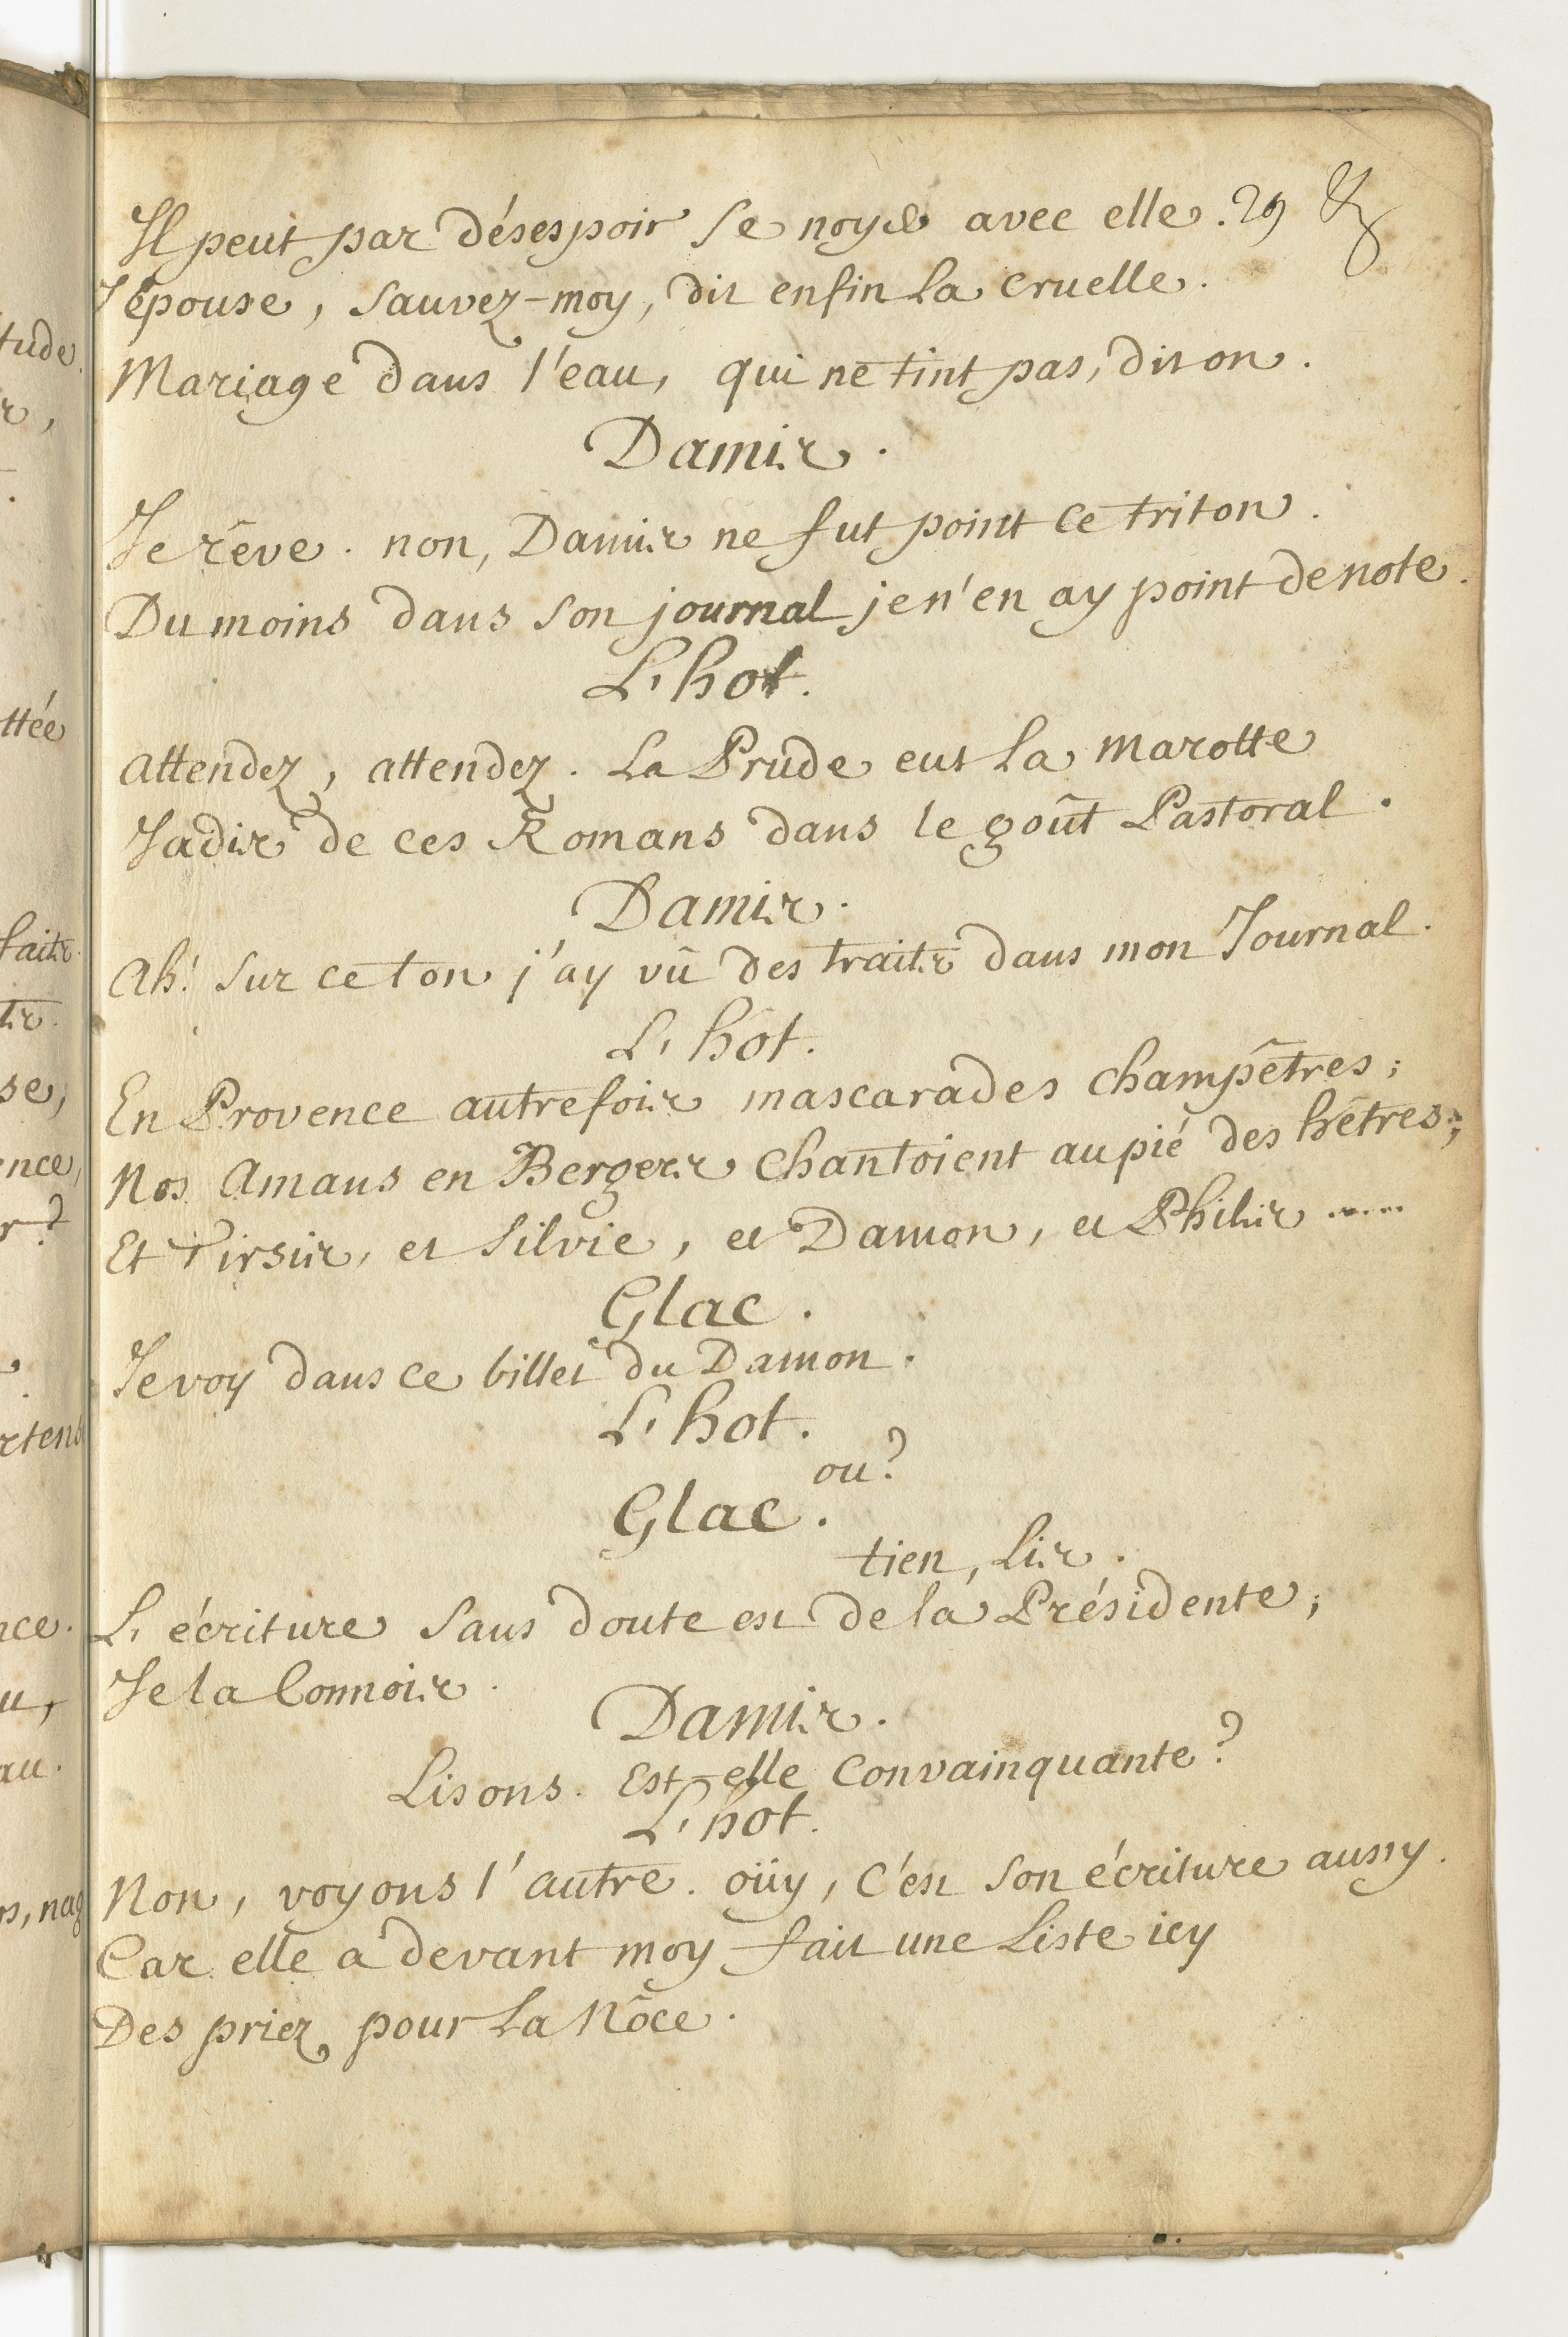 Il peut par désespoir se noyer avec elle. 29
J'épouse, sauvez-moy, dit enfin la cruelle.
Mariage dans l'eau, qui ne tint pas, dit on.
Damis.
Je rêve. non, Damis ne fut point ce triton.
Du moins dans son journal je n'en ay point de note.
L'hot.
attendez, attendez. La Prude eut la marotte
Jadis de ces Romans dans le goût Pastoral.
Damis.
Ah! sur ce ton j'ay vû des traits dans mon Journal.
L'hôt.
En Provence autrefois mascarades champêtres;
Nos Amans en Bergers chantoient au pié des hêtres;
Et Tirsis, et Silvie, et Damon, et Philis .....
Glac.
Je voy dans ce billet du Damon.
L'hot.
ou?
Glac.
tien, lis.
L'écriture sans doute est de la Présidente;
Je la Connois.
Damis.
Lisons. Est-elle Convainquante?
L'hot.
Non, voyons l'autre. oüy, c'est son écriture aussy.
Car elle a devant moy fait une Liste icy
Des priez pour la Nôce.
tude
ttée
faits
se,
ence,
rtend
nce.
u,
au.